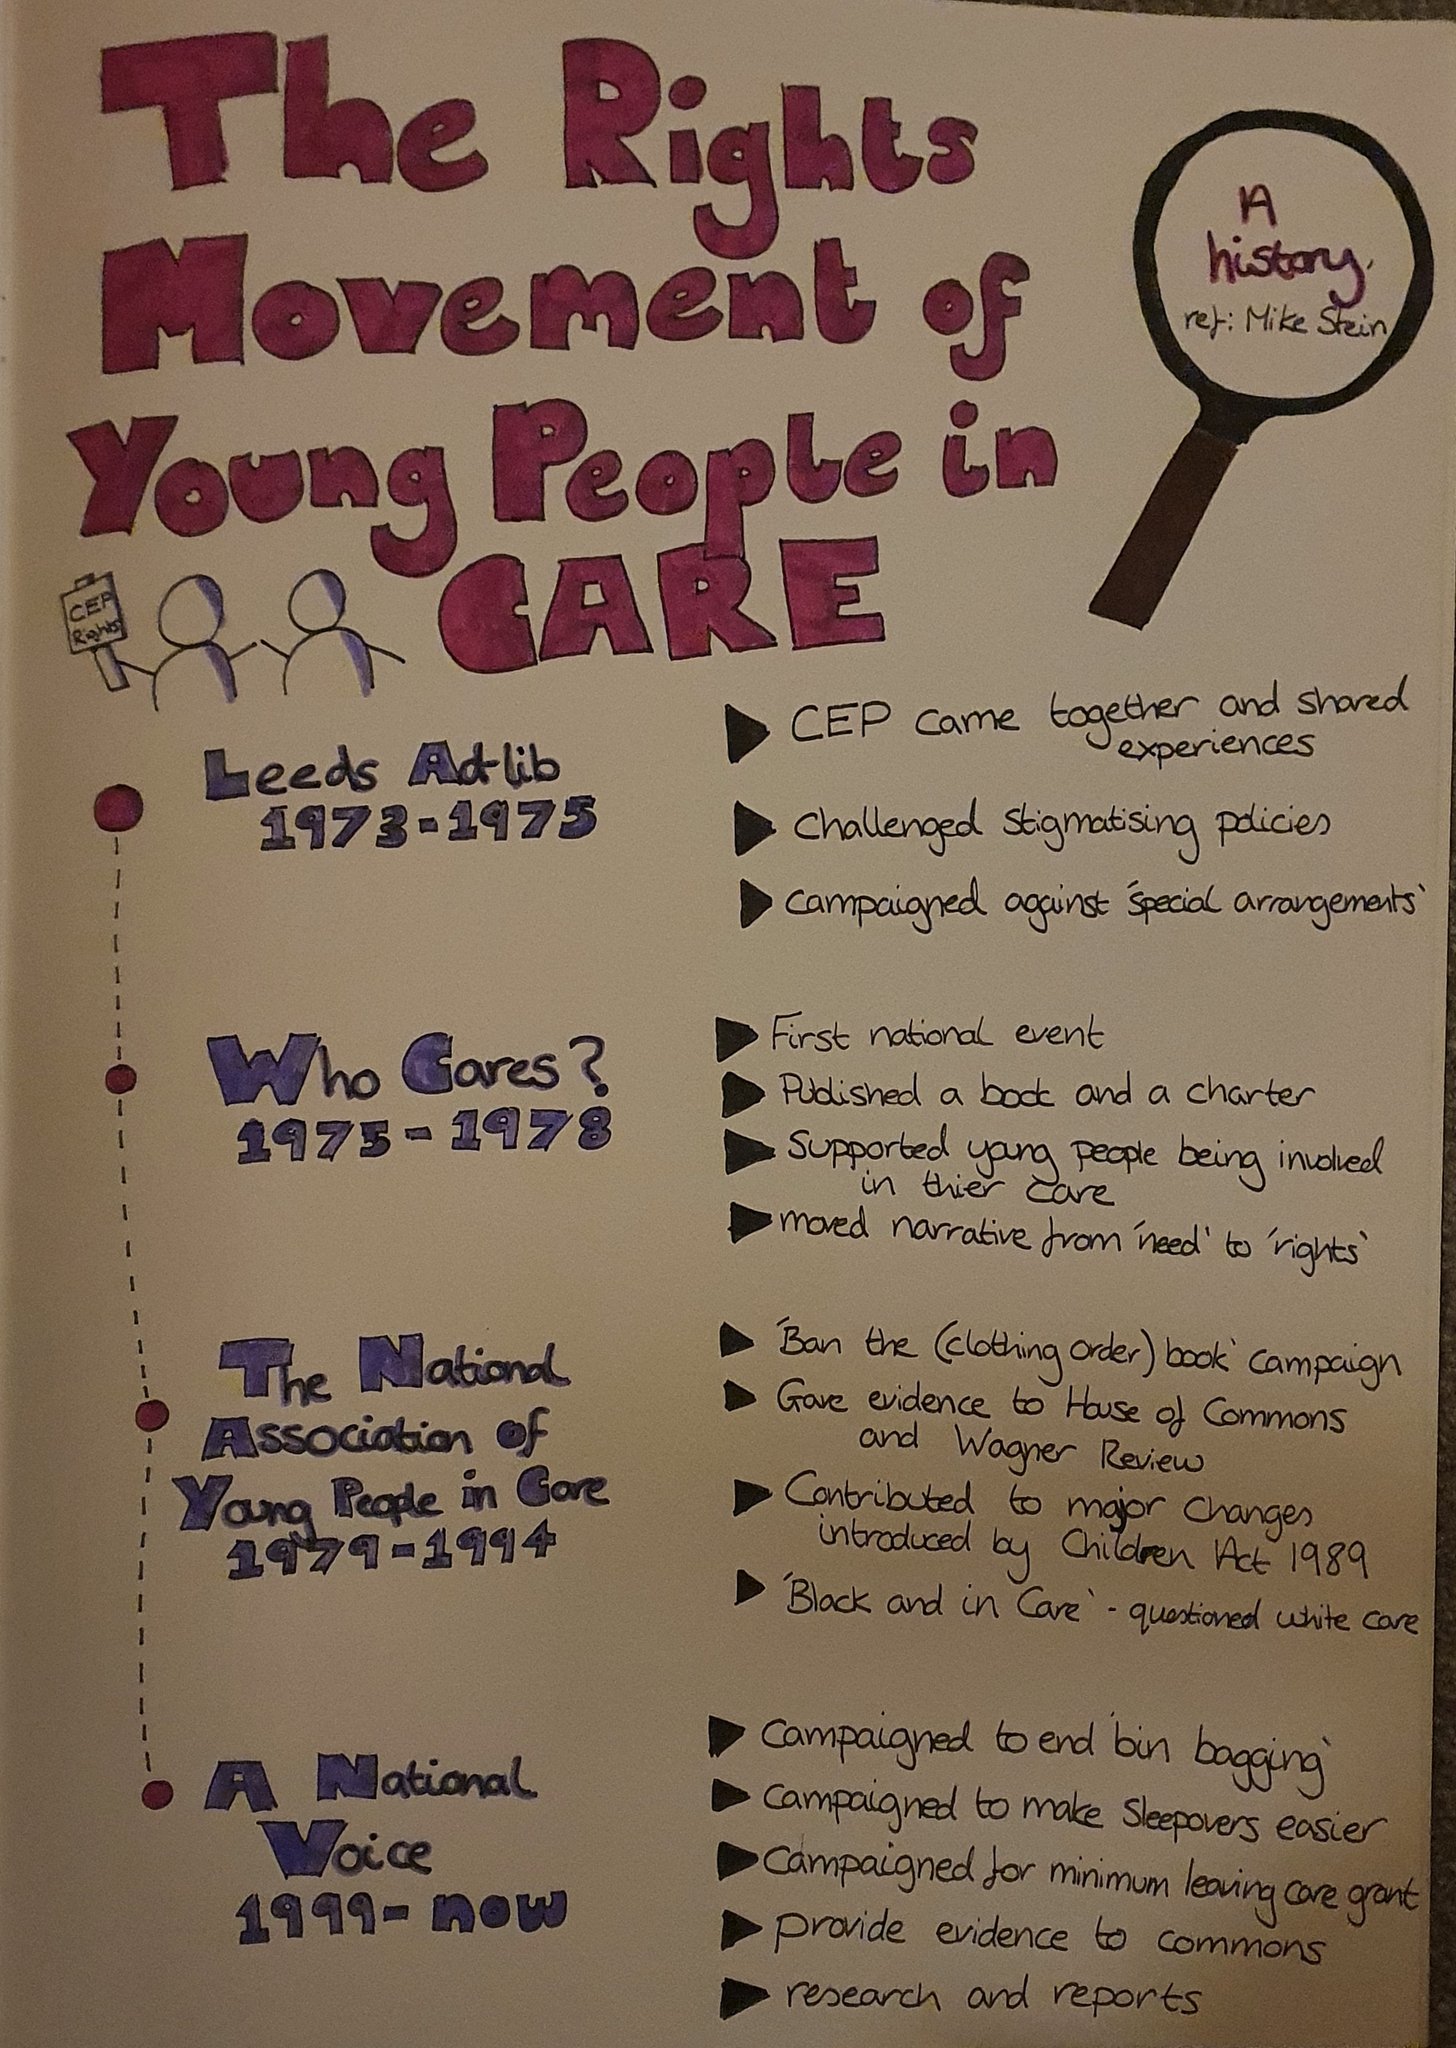 The Rights
Movement of
Young People in
CARE
A
history.
ref: Mike Stein
CEP
Rights
Leeds Ad-lib
1973-1975
CEP came together and shared
experiences
challenged stigmatising policies
campaigned against 'special arrangements'
Who Cares?
1975-1978
First national event
Published a book and a charter
Supported young people being involved
in thier care
moved narrative from 'need' to 'rights'
The National
Association of
Young People in Care
1979-1994
'Ban the (clothing order) book' campaign
Gave evidence to House of Commons
and Wagner Review
Contributed to major changes
introduced by Children Act 1989
'Black and in Care' - questioned white care
A National
Voice
1999- now
campaigned to end 'bin bagging'
campaigned to make sleepovers easier
campaigned for minimum leaving care grant
provide evidence to commons
research and reports